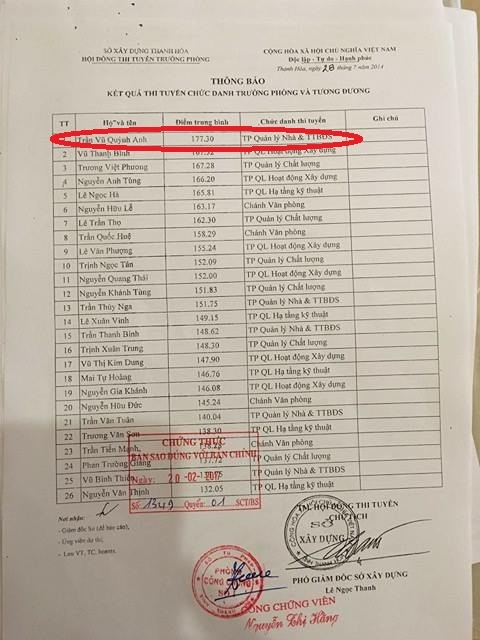 SỞ XÂY DỰNG THANH HÓA
HỘI ĐỒNG THI TUYỂN TRƯỞNG PHÒNG
CỘNG HÒA XÃ HỘI CHỦ NGHĨA VIỆT NAM
Độc lập - Tự do - Hạnh phúc
Thanh Hóa, ngày 28 tháng 7 năm 2014
THÔNG BÁO
KẾT QUẢ THI TUYỂN CHỨC DANH TRƯỞNG PHÒNG VÀ TƯƠNG ĐƯƠNG
TT Họ và tên Điểm trung bình Chức danh thi tuyển Ghi chú
1 Trần Vũ Quỳnh Anh 177.30 TP Quản lý Nhà & TTBĐS
2 Vũ Thanh Bình 167.52 TP QL Hoạt động Xây dựng
3 Trương Việt Phương 167.28 TP Quản lý Chất lượng
4 Nguyễn Anh Tùng 166.20 TP QL Hoạt động Xây dựng
5 Lê Ngọc Hà 165.81 TP QL Hạ tầng kỹ thuật
6 Nguyễn Hữu Lễ 163.17 Chánh Văn phòng
7 Lê Trần Thọ 162.30 TP Quản lý Chất lượng
8 Trần Quốc Huệ 158.29 Chánh Văn phòng
9 Lê Văn Phượng 155.24 TP QL Hoạt động Xây dựng
10 Trịnh Ngọc Tân 152.09 TP Quản lý Chất lượng
11 Nguyễn Quang Thái 152.00 TP QL Hoạt động Xây dựng
12 Nguyễn Khánh Tùng 151.83 TP Quản lý Chất lượng
13 Trần Thùy Nga 151.75 TP Quản lý Nhà & TTBĐS
14 Lê Xuân Vinh 149.15 TP QL Hạ tầng kỹ thuật
15 Trần Thanh Bình 148.62 TP Quản lý Nhà & TTBĐS
16 Trịnh Xuân Trung 148.30 TP Quản lý Chất lượng
17 Vũ Thị Kim Dung 147.90 TP QL Hoạt động Xây dựng
18 Mai Tự Hoàng 146.76 TP QL Hạ tầng kỹ thuật
19 Nguyễn Gia Khánh 146.08 TP QL Hoạt động Xây dựng
20 Nguyễn Hữu Đức 145.24 Chánh Văn phòng
21 Trần Văn Tuân 140.04 TP Quản lý Nhà & TTBĐS
22 Trương Văn Sơn 138.30 TP QL Hạ tầng kỹ thuật
23 Trần Tiến Mạnh 138.28 Chánh Văn phòng
24 Phan Trường Giang 137.72 TP Quản lý Chất lượng
25 Vũ Bình Thiên TP Quản lý Nhà & TTBĐS
26 Nguyễn Văn Thịnh 132.05 TP QL Hạ tầng kỹ thuật
CHỨNG THỰC
BẢN SAO ĐÚNG VỚI BẢN CHÍNH
Ngày: 20 -02- 2017
Số: 1349 Quyển: 01 SCT/BS
Nơi nhận:
- Giám đốc Sở (để báo cáo),
- Ứng viên dự thi,
- Lưu VT, TC.
T.M. HỘI ĐỒNG THI TUYỂN
CHỦ TỊCH
SỞ
XÂY DỰNG
PHÓ GIÁM ĐỐC SỞ XÂY DỰNG
Lê Ngọc Thanh
PHÒNG
CÔNG CHỨNG
SỐ 1
CÔNG CHỨNG VIÊN
Nguyễn Thị Hằng